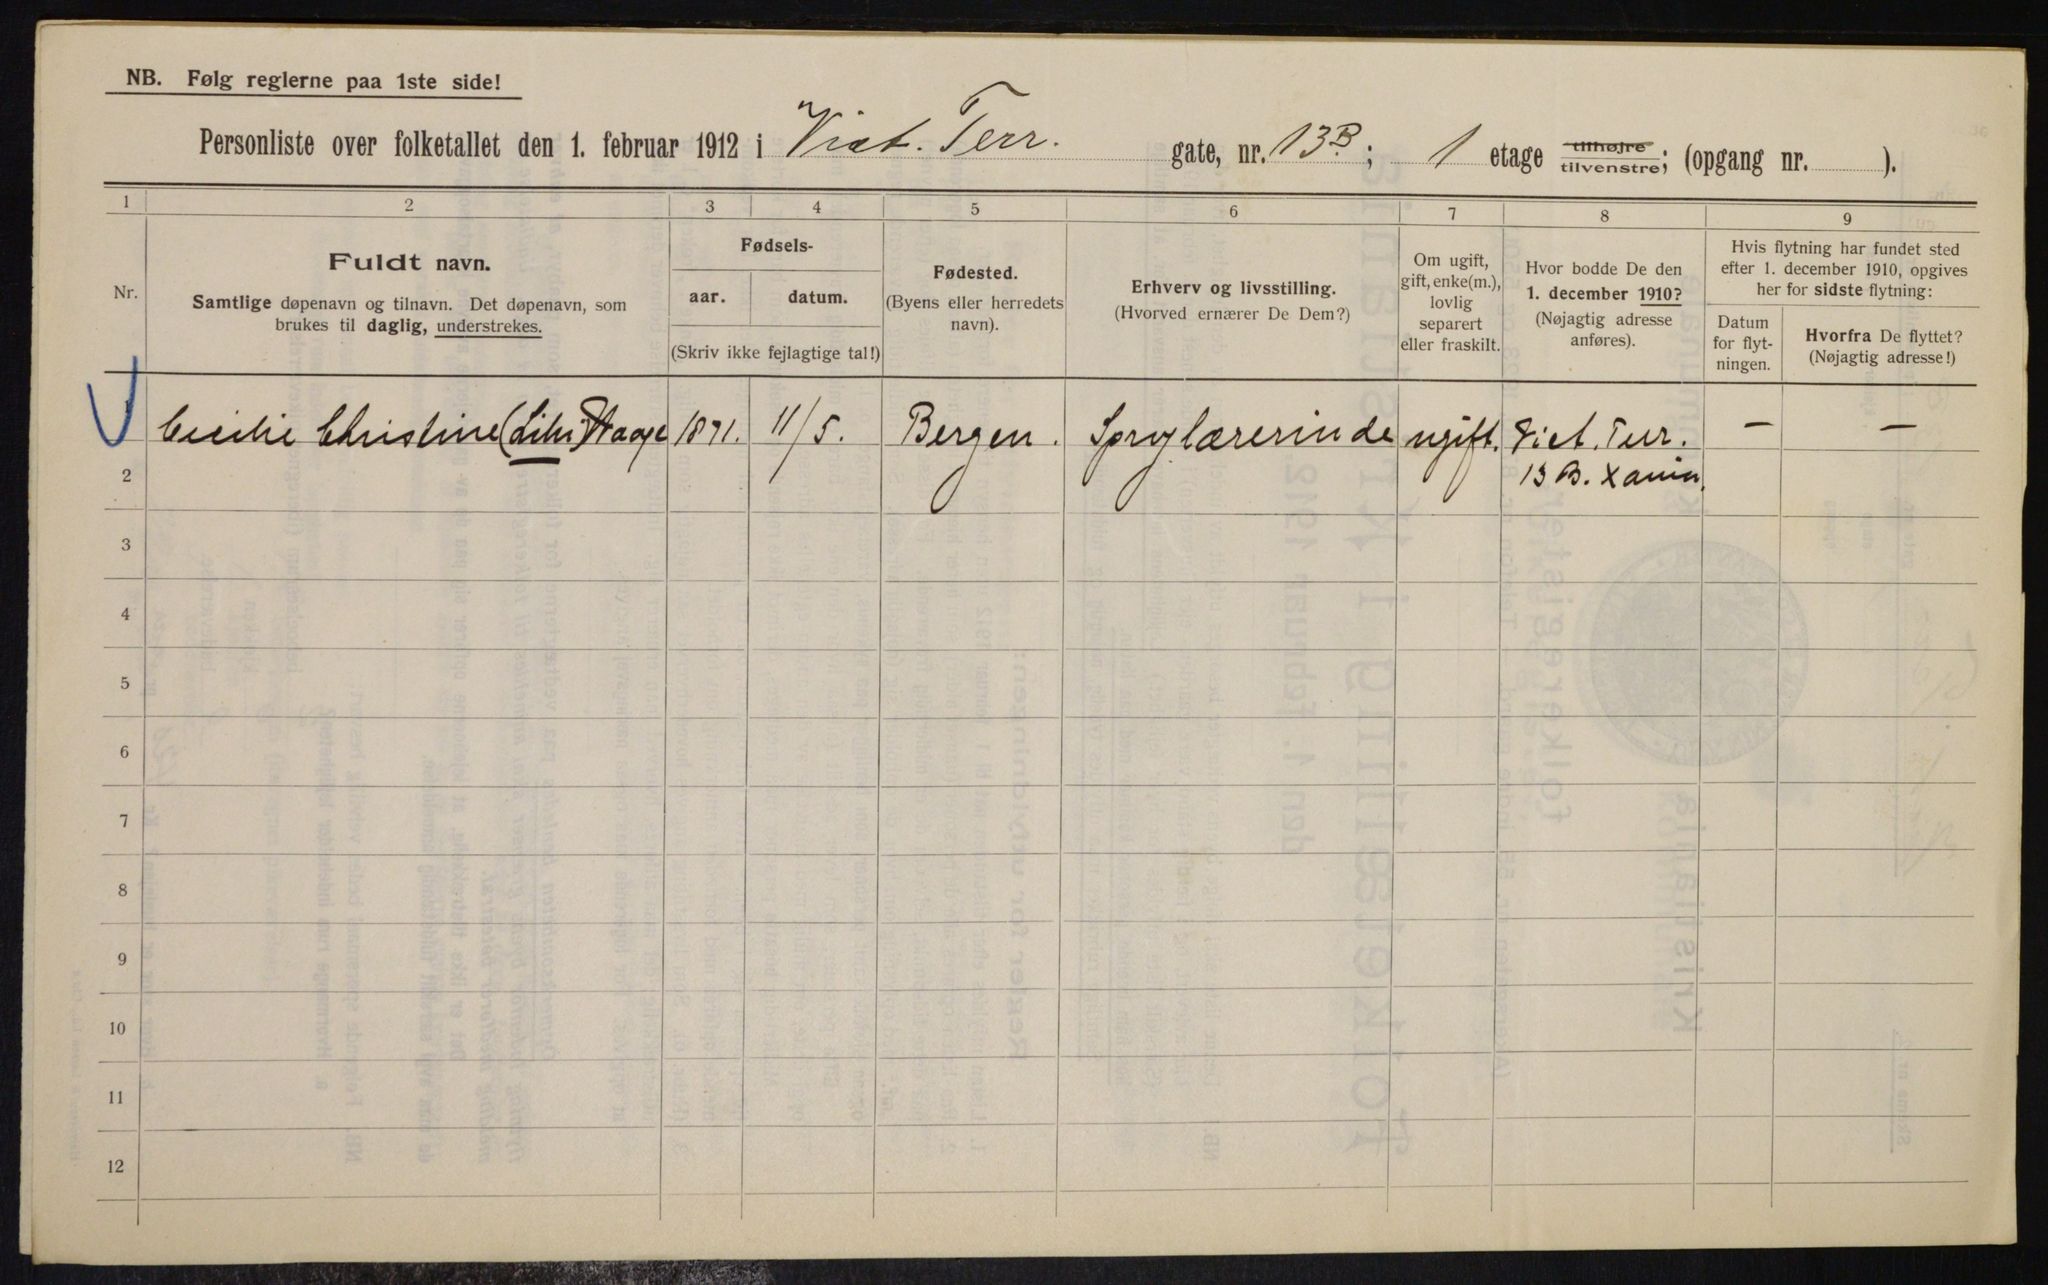 NB. Følg reglerne paa 1ste side!
Personliste over folketallet den 1. februar 1912 i Vict. Terr. gate, nr. 13B; 1 etage tilhøjre tilvenstre; (opgang nr. ).
1 2 3 4 5 6 7 8 9
Nr.
Fuldt navn.
Samtlige døpenavn og tilnavn. Det døpenavn, som
brukes til daglig, understrekes.
Fødsels-
aar. datum.
(Skriv ikke fejlagtige tal!)
Fødested.
(Byens eller herredets
navn).
Erhverv og livsstilling.
(Hvorved ernærer De Dem?)
Om ugift,
gift, enke(m.),
lovlig
separert
eller fraskilt.
Hvor bodde De den
1. december 1910?
(Nøjagtig adresse
anføres).
Hvis flytning har fundet sted
efter 1. december 1910, opgives
her for sidste flytning:
Datum
for flyt-
ningen.
Hvorfra De flyttet?
(Nøjagtig adresse!)
Cecilie Christine 1871. 11/5. Bergen. Sproglærerinde ugift. Vict. Terr. — —
2 13 B.
3
4
5
6
7
8
9
10
11
12